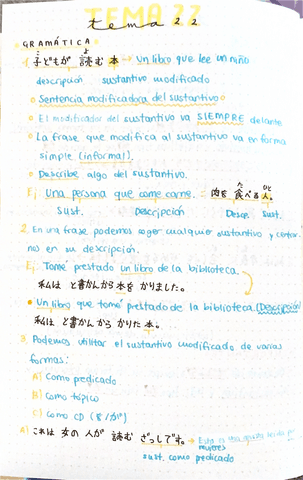 TEMA 22
tema 22
GRAMÁTICA
1. 子どもが 読む 本 → Un libro que lee un niño
よ
descripción sustantivo modificado
Sentencia modificadora del sustantivo
El modificador del sustantivo va SIEMPRE delante
La frase que modifica al sustantivo va en forma
simple (informal).
Describe algo del sustantivo.
Ej: Una persona que come carne. = 肉を 食べる 人.
た ひと
Sust. Descripción Descp. Sust.
2. En una frase podemos coger cualquier sustantivo y centrar
nos en su descripción.
Ej: Tomé prestado un libro de la biblioteca.
私は と書かんから本を かりました。
Un libro que tomé prestado de la biblioteca (Descripción)
私は と書かんから かりた 本。
3. Podemos utilizar el sustantivo modificado de varias
formas:
A) Como predicado
B) Como tópico
C) Como CD (を/が)
A) これは 女の 人が 読む ざっしです。→ Esta es una revista leída por
mujeres
sust. como predicado